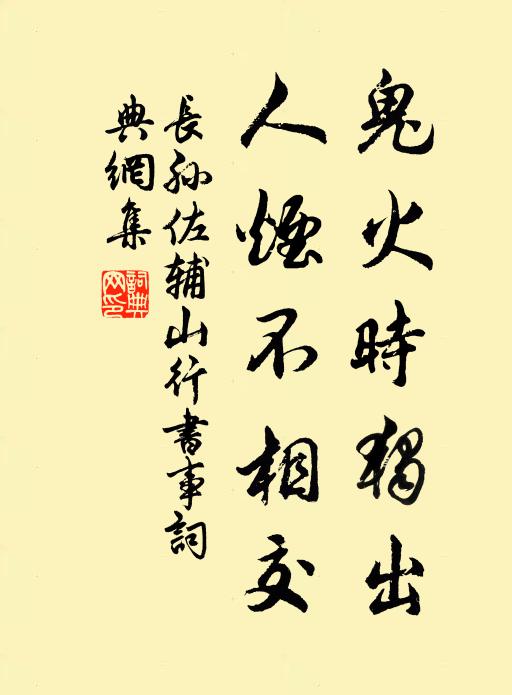 鬼火時獨出
人煙不相交
長孙佐辅山行書事詞
典網集
詞典
网印